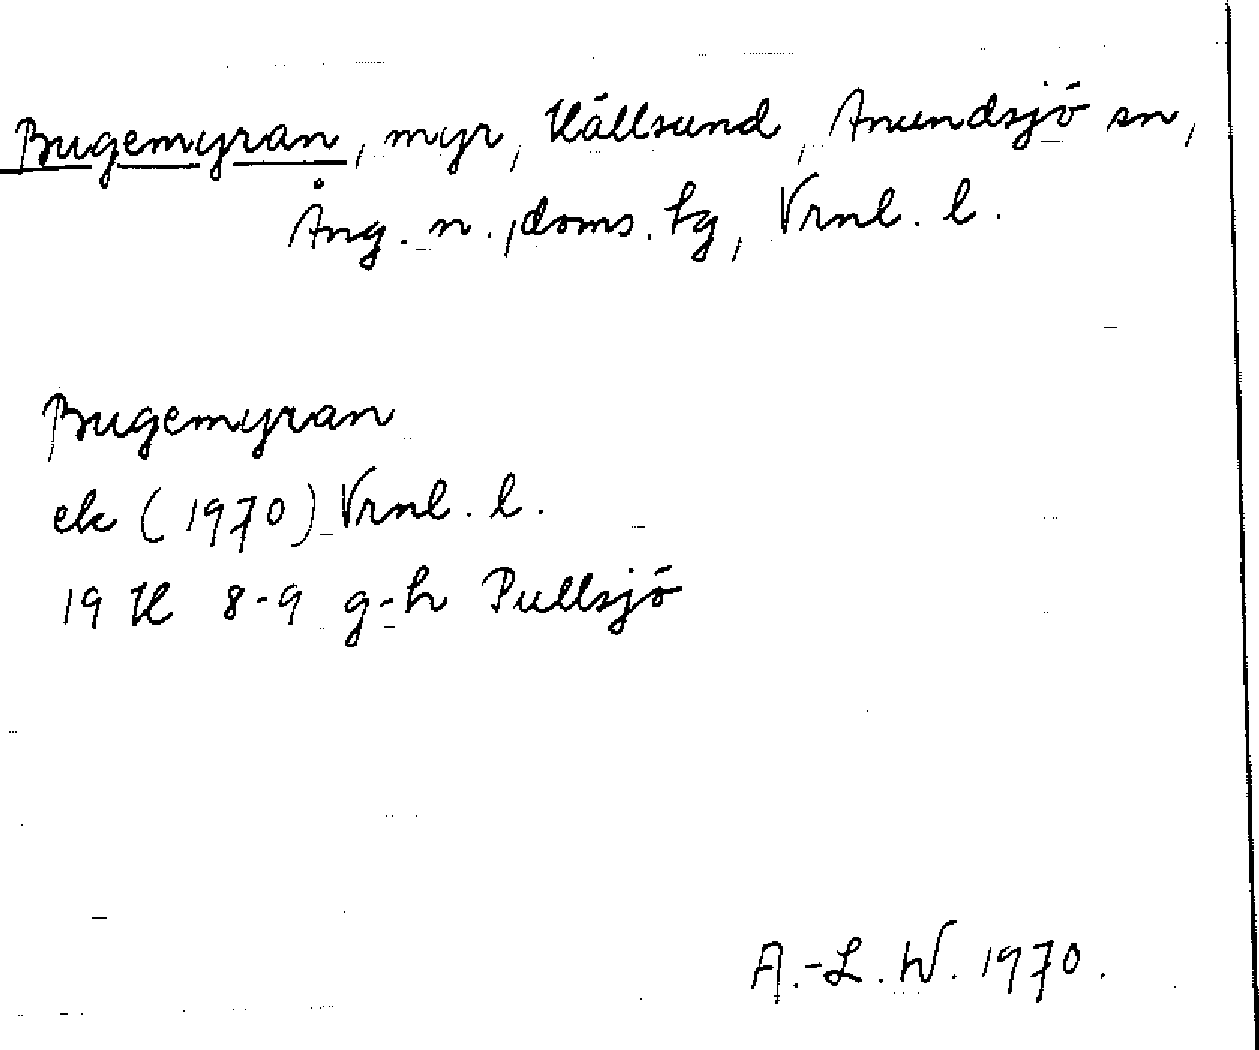 Bugemyran, myr, Hällsund, Anundsjö sn,
Ång. n., doms. tg, Vrnl. l.
Bugemyran
ek (1970) Vrnl. l.
19 H 8-9 g-h Pullsjö
A.-L. W. 1970.